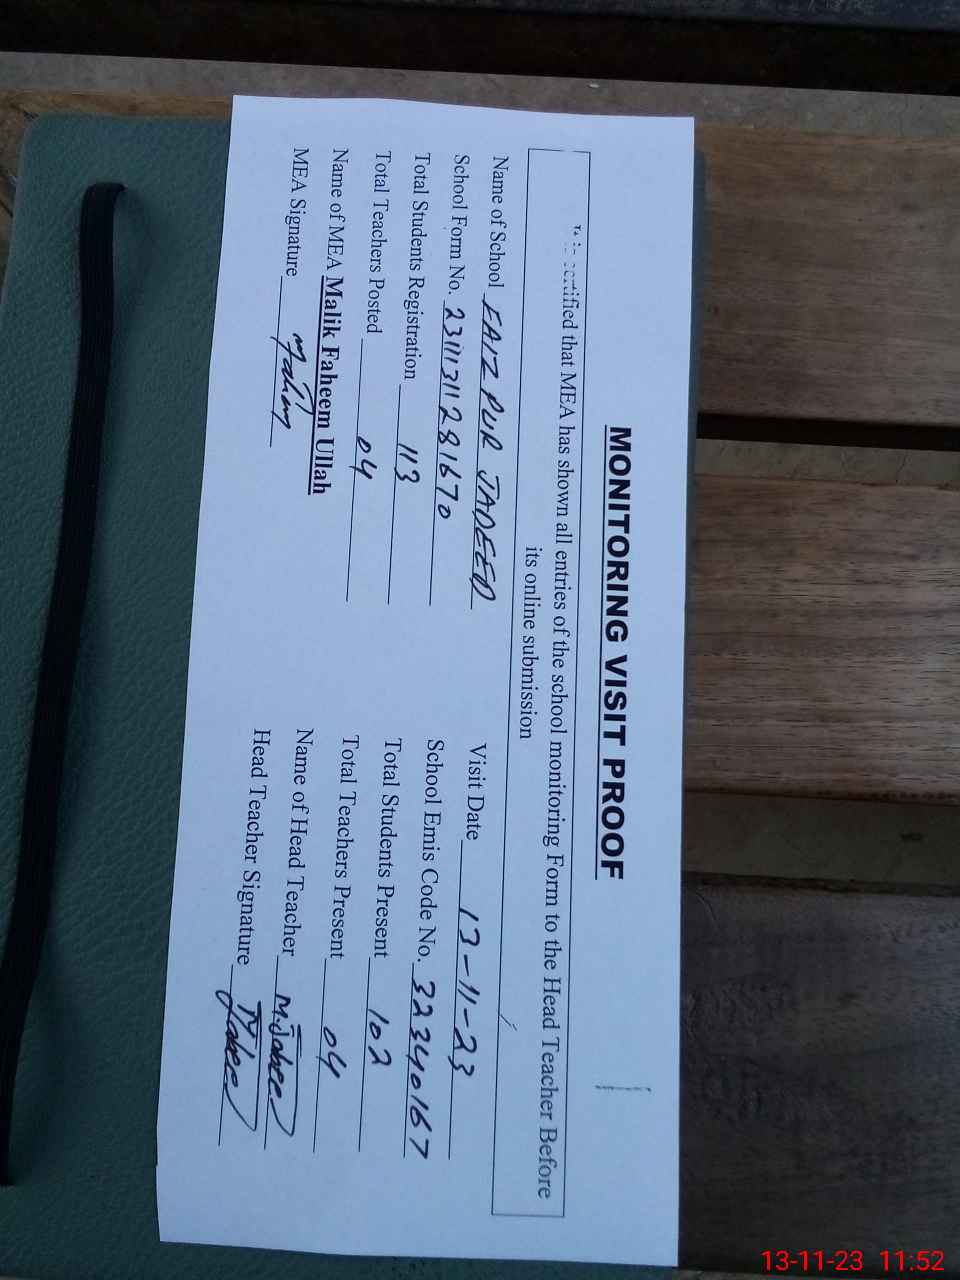 MONITORING VISIT PROOF
certified that MEA has shown all entries of the school monitoring Form to the Head Teacher Before
its online submission
Name of School FAIZ PUR JADEED Visit Date 13-11-23
School Form No. 2311131128167 0 School Emis Code No. 32340167
Total Students Registration 113 Total Students Present 102
Total Teachers Posted 04 Total Teachers Present 04
Name of MEA Malik Faheem Ullah Name of Head Teacher
MEA Signature Head Teacher Signature
13-11-23 11:52